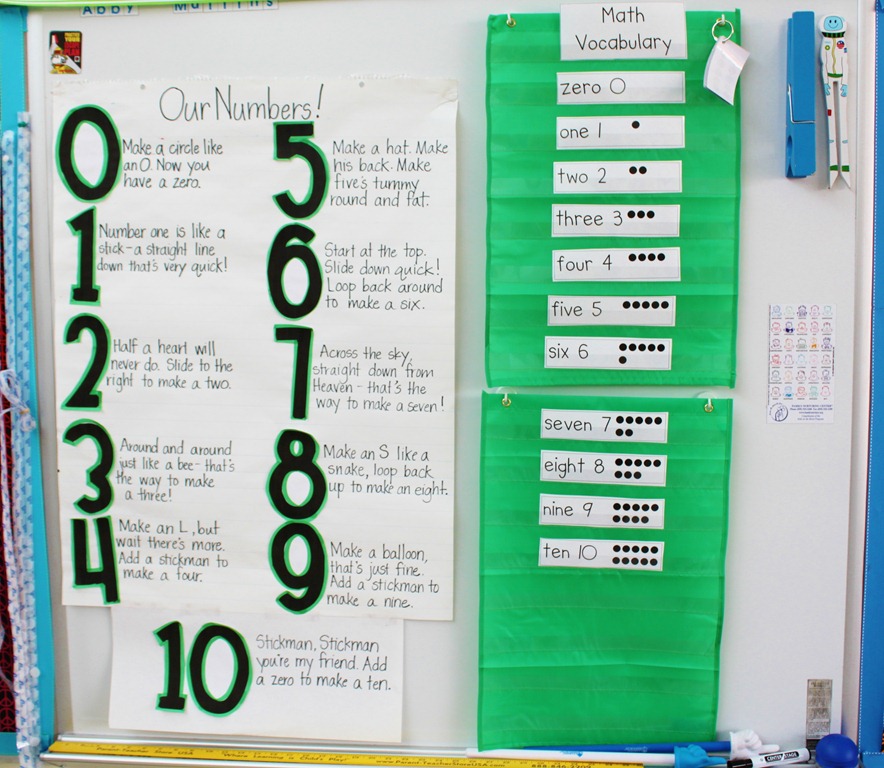 Abby Mullins
Our Numbers!
0
Make a circle like
an O. Now you
have a zero.
1
Number one is like a
stick-a straight line
down that's very quick!
2
Half a heart will
never do. Slide to the
right to make a two.
3
Around and around
just like a bee-that's
the way to make
a three!
4
Make an L, but
wait there's more.
Add a stickman to
make a four.
5
Make a hat. Make
his back. Make
five's tummy
round and fat.
6
Start at the top.
Slide down quick!
Loop back around
to make a six.
7
Across the sky,
straight down from
Heaven-that's the
way to make a seven!
8
Make an S like a
snake, loop back
up to make an eight.
9
Make a balloon,
that's just fine.
Add a stickman to
make a nine.
10
Stickman, Stickman
you're my friend. Add
a zero to make a ten.
Math
Vocabulary
zero 0
one 1
two 2
three 3
four 4
five 5
six 6
seven 7
eight 8
nine 9
ten 10
Parent Teacher Store USA
Where Learning is Child's Play!
www.ParentTeacherStoreUSA.com